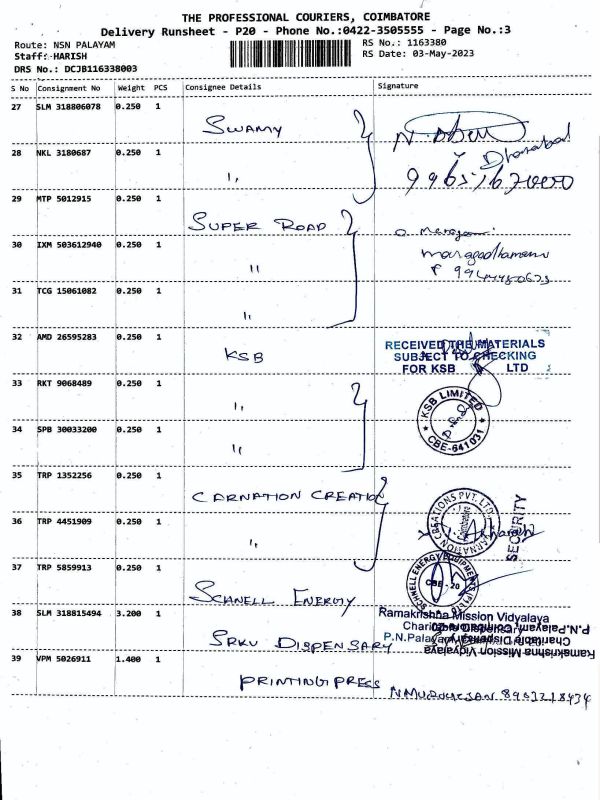 THE PROFESSIONAL COURIERS, COIMBATORE
Delivery Runsheet - P20 - Phone No.:0422-3505555 - Page No.:3
Route: NSN PALAYAM
RS No.: 1163380
Staff:-HARISH
RS Date: 03-May-2023
DRS No.: DCJB116338003
S No Consignment No Weight PCS Consignee Details Signature
27 SLM 318806078 0.250 1 SWAMY
28 NKL 3180687 0.250 1 ''
29 MTP 5012915 0.250 1 SUPER ROAD
30 IXM 503612940 0.250 1 ''
31 TCG 15061082 0.250 1 ''
32 AMD 26595283 0.250 1 KSB
RECEIVED THE MATERIALS
SUBJECT TO CHECKING
FOR KSB LTD
33 RKT 9068489 0.250 1 ''
KSB LIMITED
CBE-641031
34 SPB 30033200 0.250 1 ''
35 TRP 1352256 0.250 1 CARNATION CREATION
CARNATION CREATIONS PVT. LTD.
Coimbatore
SECURITY
36 TRP 4451909 0.250 1 ''
37 TRP 5859913 0.250 1 SCHNELL ENERGY
SCHNELL ENERGY EQUIPMENTS (P) LTD
CBE - 20
38 SLM 318815494 3.200 1 SRKV DISPENSARY
Ramakrishna Mission Vidyalaya
Charitable Dispensary
P.N.Palayam, Coimbatore-20
Ramakrishna Mission Vidyalaya
Charitable Dispensary
P.N.Palayam, Coimbatore-20
39 VPM 5026911 1.400 1 PRINTING PRESS